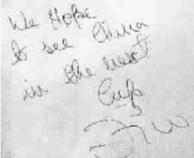 We Hope
to see China
in the next
Cup